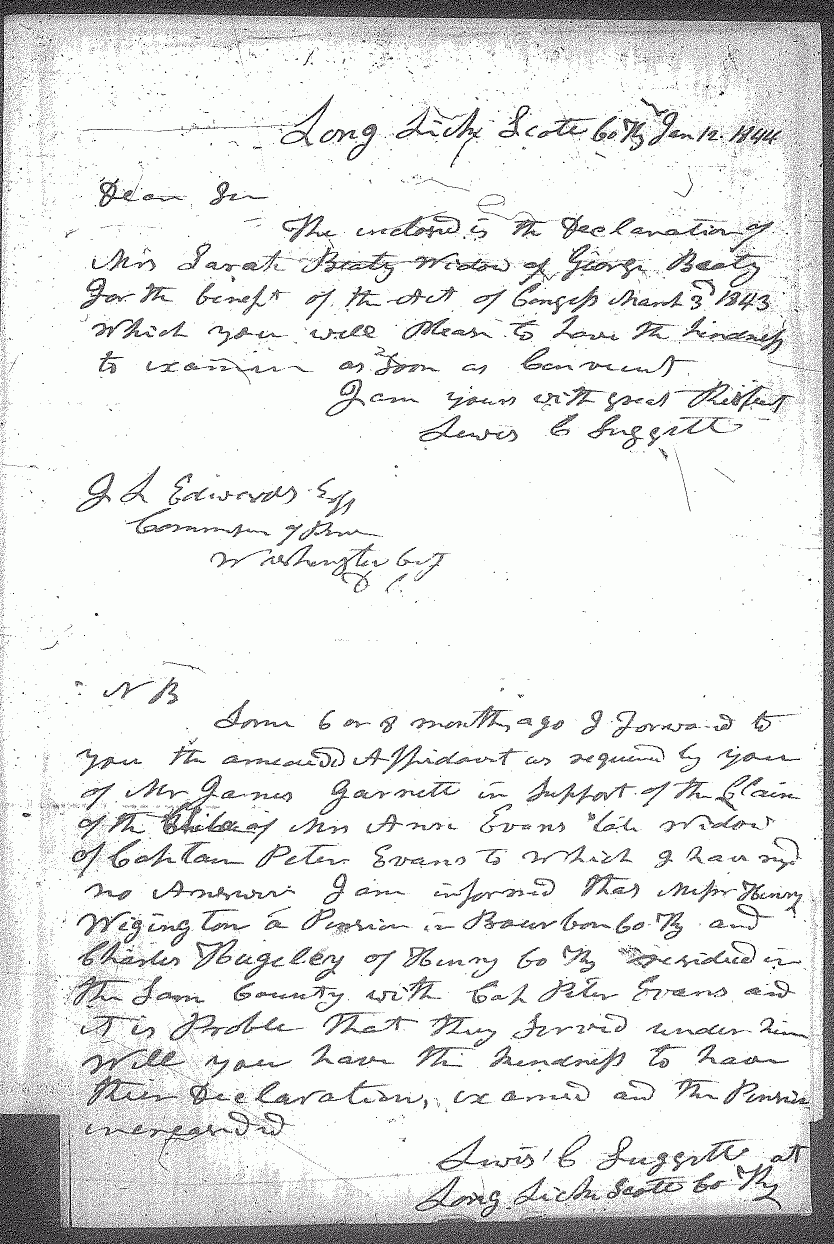 Long Lick Scott Co Ky Jan 12. 1844
Dear Sir
The inclosed is the Declaration of
Mrs Sarah Beaty Widow of George Beaty
for the benefit of the Act of Congess March 3d 1843
Which you will Please to have the kindness
to examin as Soon as Convenent
I am yours with great Respect
Lewis C Suggett
J L Edwards Esqr
Commisr of Pen
Washington City
D C.
N B
Some 6 or 8 months ago I Forward to
you the amended Affidavit as required by you
of Mr James Garnett in Support of the Claim
of the of Mrs Anne Evans late Widow
of Captan Peter Evans to Which I have
no Answer I am informed that Messr Henry
Wigington a Pension in Bourbon Co Ky and
Charles Hugeley of Henry Co Ky resided in
the Same County with Cap Peter Evans and
it is Proble that they Served under him
Will you have the kindness to have
their Declaration, examed and the Pension
increased
Lewis C Suggett at
Long Lick Scott Co Ky